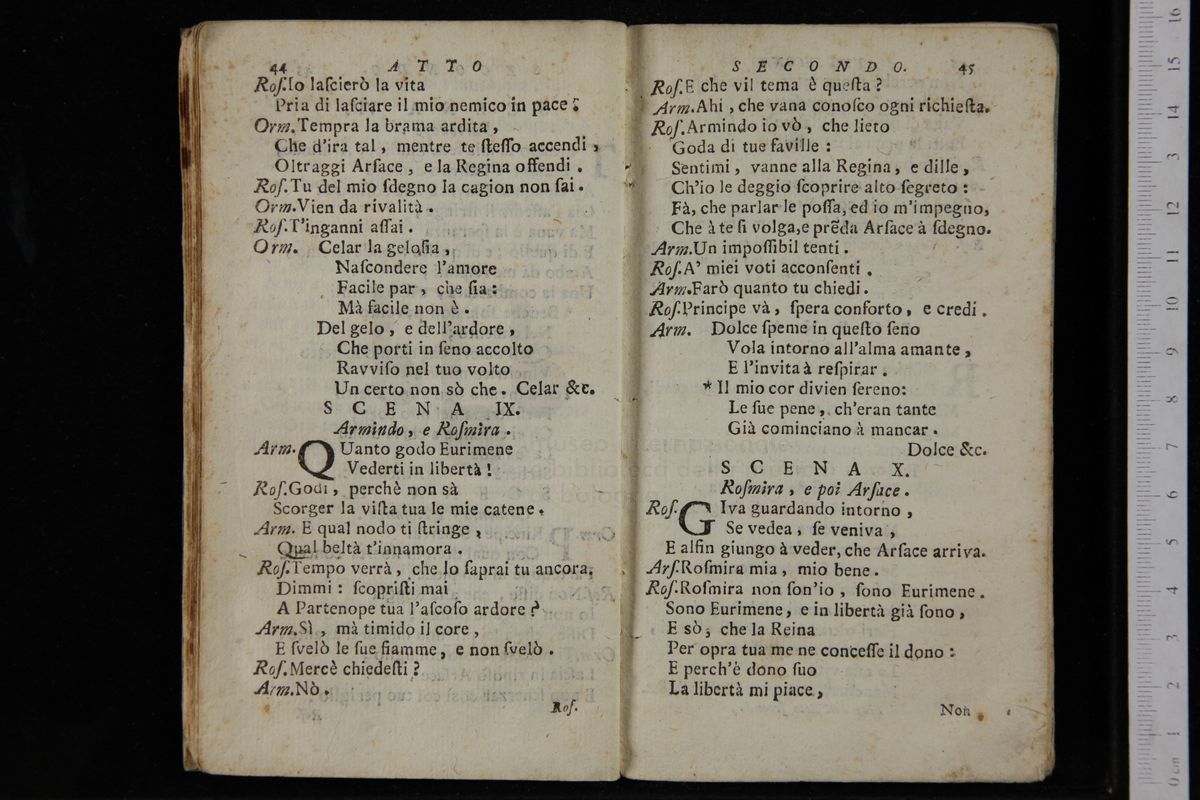 44 ATTO
Roſ.Io laſcierò la vita
Pria di laſciare il mio nemico in pace.
Orm.Tempra la brama ardita,
Che d'ira tal, mentre te ſteſſo accendi,
Oltraggi Arſace, e la Regina offendi.
Roſ.Tu del mio ſdegno la cagion non ſai.
Orm.Vien da rivalità.
Roſ.T'inganni aſſai.
Orm. Celar la geloſia,
Naſcondere l'amore
Facile par, che ſia:
Mà facile non è.
Del gelo, e dell'ardore,
Che porti in ſeno accolto
Ravviſo nel tuo volto
Un certo non sò che. Celar &c.
SCENA IX.
Armindo, e Roſmira.
Arm.QUanto godo Eurimene
Vederti in libertà!
Roſ.Godi, perchè non sà
Scorger la viſta tua le mie catene.
Arm. E qual nodo ti ſtringe,
Qual beltà t'innamora.
Roſ.Tempo verrà, che lo ſaprai tu ancora.
Dimmi: ſcopriſti mai
A Partenope tua l'aſcoſo ardore?
Arm.Sì, mà timido il core,
E ſvelò le ſue fiamme, e non ſvelò.
Roſ.Mercè chiedeſti?
Arm.Nò.
Roſ.
SECONDO. 45
Roſ.E che vil tema è queſta?
Arm.Ahi, che vana conoſco ogni richieſta.
Roſ.Armindo io vò, che lieto
Goda di tue faville:
Sentimi, vanne alla Regina, e dille,
Ch'io le deggio ſcoprire alto ſegreto:
Fà, che parlar le poſſa, ed io m'impegno,
Che à te ſi volga, e prẽda Arſace à ſdegno.
Arm.Un impoſſibil tenti.
Roſ.A' miei voti acconſenti.
Arm.Farò quanto tu chiedi.
Roſ.Principe và, ſpera conforto, e credi.
Arm. Dolce ſpeme in queſto ſeno
Vola intorno all'alma amante,
E l'invita à reſpirar.
* Il mio cor divien ſereno:
Le ſue pene, ch'eran tante
Già cominciano à mancar.
Dolce &c.
SCENA X.
Roſmira, e poi Arſace.
Roſ.GIva guardando intorno,
Se vedea, ſe veniva,
E alfin giungo à veder, che Arſace arriva.
Arſ.Roſmira mia, mio bene.
Roſ.Roſmira non ſon'io, ſono Eurimene.
Sono Eurimene, e in libertà già ſono,
E sò, che la Reina
Per opra tua me ne conceſſe il dono:
E perch'è dono ſuo
La libertà mi piace,
Non
0 cm 1 2 3 4 5 6 7 8 9 10 11 12 13 14 15 16